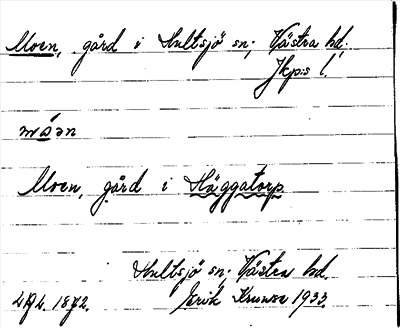 Moen, gård i Hultsjö sn; Västra hd,
Jkps l.
móən
Moen, gård i Häggatorp
Hultsjö sn; Västra hd.
Erik Kruuse 1933